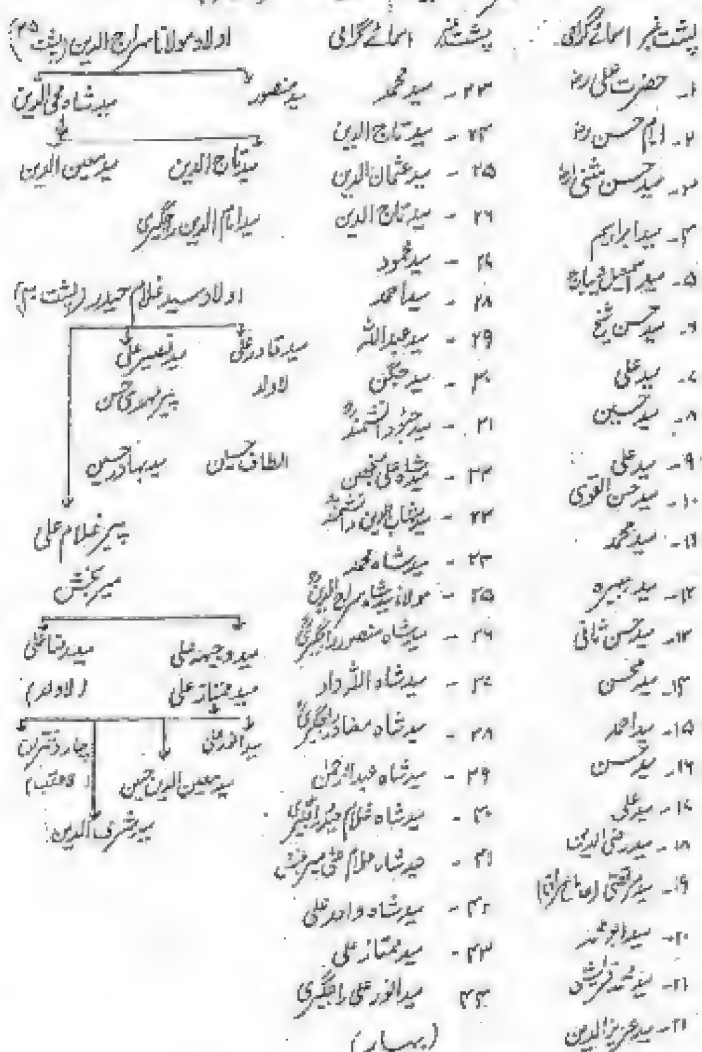 پشت نمبر اسمائے گرامی
۱۔ حضرت علی رض
۲۔ امام حسن رض
۳۔ سید حسن مثنیٰ رض
۴۔ سید ابراہیم
۵۔ سید اسمعیل دیباج
۶۔ سید حسن شخ
۷۔ سید علی
۸۔ سید حسین
۹۔ سید علی
۱۰۔ سید حسن القوی
۱۱۔ سید محمد
۱۲۔ سید ہبیرہ
۱۳۔ سید حسن ثانی
۱۴۔ سید محسن
۱۵۔ سید احمد
۱۶۔ سید حسن
۱۷۔ سید علی
۱۸۔ سید رضی الدین
۱۹۔ سید مرتضیٰ
۲۰۔ سید ابو محمد
۲۱۔ سید محمد قریش
۲۱۔ سید عزیز الدین
پشت نمبر اسمائے گرامی
۲۳ - سید محمد
۲۴ - سید تاج الدین
۲۵ - سید عثمان الدین
۲۶ - سید تاج الدین
۲۷ - سید محمود
۲۸ - سید احمد
۲۹ - سید عبداللہ
۳۰ - سید جگن
۳۱ - سید دانشمند
۳۲ - علی
۳۳ - سید شہاب الدین دانشمند
۳۴ - سید شاہ محمد
۳۵ - مولانا سید شاہ سراج الدین
۳۶ - سید شاہ منصور راجگیری
۳۷ - سید شاہ اللہ داد
۳۸ - سید شاہ راجگیری
۳۹ - سید شاہ عبدالرحمٰن
۴۰ - سید شاہ غلام حیدر راجگیری
۴۱ - سید شاہ غلام علی میر بخش
۴۲ - سید شاہ علی
۴۳ - سید ممتاز علی
۴۴ سید انور علی راجگیری
(بہار)
اولاد مولانا سراج الدین (پشت ۳۵)
سید منصور سید شاہ محی الدین
سید تاج الدین سید معین الدین
سید امام الدین راجگیری
اولاد سید غلام حیدر (پشت ۴۰)
سید قادر علی سید نصیر علی
لاولد پیر مہدی حسن
الطاف حسین سید بہادر حسین
پیر غلام علی
میر بخش
سید وجہہ علی سید رضا علی
سید ممتاز علی (لاولد)
سید انور علی سید معین الدین حسین چار دختریں
سید شرف الدین